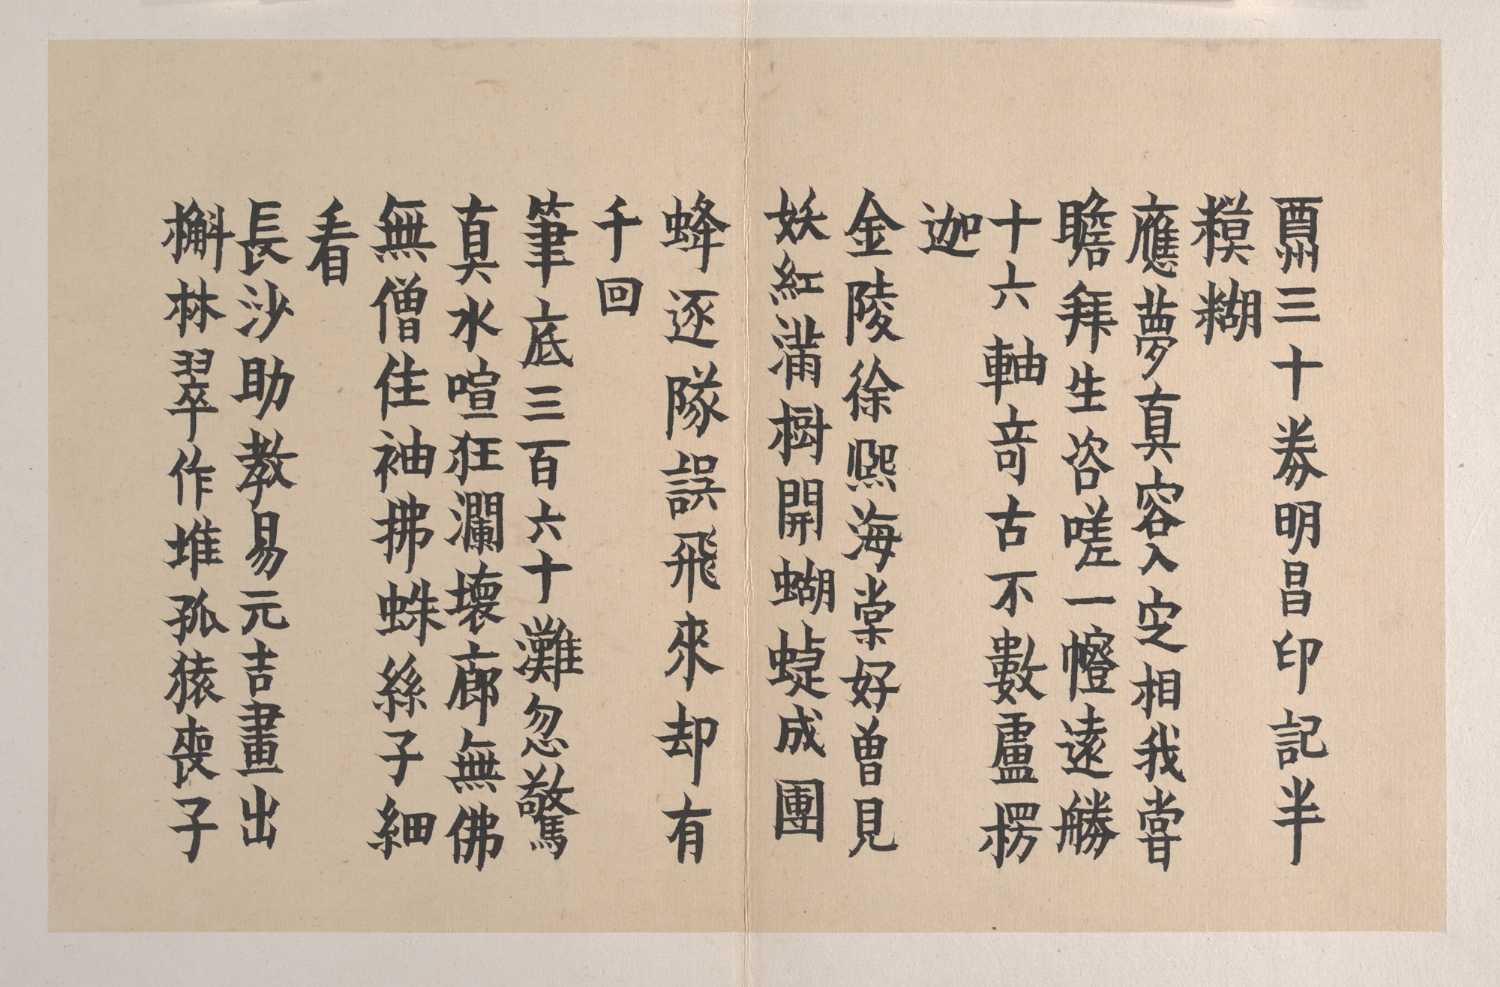 票三十券明昌印記半
糢糊
應夢真容入定相我嘗
瞻拜生咨嗟一幢遠勝
十六軸竒古不數盧楞
迦
金陵徐熙海棠好曽見
妖紅滿樹開蝴蜨成團
蜂逐隊誤飛來却有
千回
筆底三百六十灘忽驚
真水喧狂瀾壊廊無佛
無僧住袖拂蛛絲子細
看
長沙助教易元吉畫出
槲林翠作堆孤猿喪子